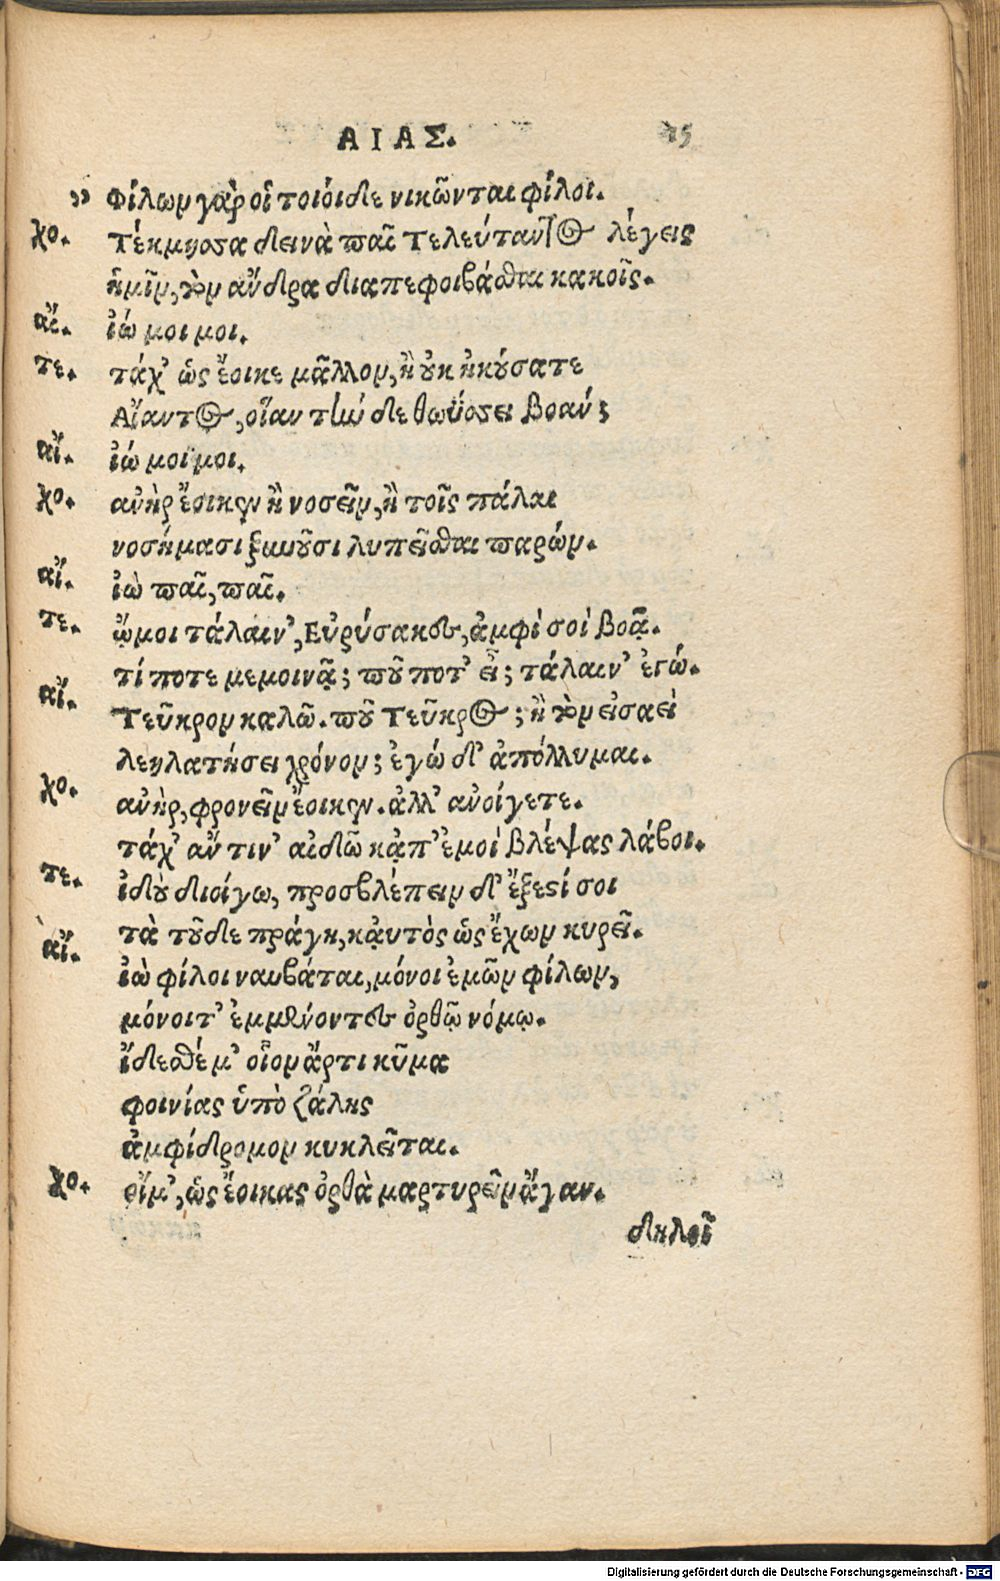 ΑΙΑΣ. 15
,, Φίλων γὰρ οἱ τοιοίδε νικῶνται φίλοι.
χο. Τέκμησσα δεινὰ παῖ Τελεύταντος λέγεις
ἡμῖν, τὸν ἄνδρα διαπεφοιβάσθαι κακοῖς.
αἴ. ἰώ μοι μοι.
τε. τάχ' ὡς ἔοικε μᾶλλον, ἢ οὐκ ἠκούσατε
Αἴαντος, οἵαν τὴν δε θωΰσσει βοάν;
αἴ. ἰώ μοι μοι.
χο. ἀνὴρ ἔοικεν ἢ νοσεῖν, ἢ τοῖς πάλαι
νοσήμασι ξυνοῦσι λυπεῖσθαι παρών.
αἴ. ἰὼ παῖ, παῖ.
τε. ᾤμοι τάλαιν', Εὐρύσακες, ἀμφὶ σοὶ βοᾷ.
τί ποτε μεμοινᾷ; ποῦ ποτ' εἶ; τάλαιν' ἐγώ.
αἴ. Τεῦκρον καλῶ. ποῦ Τεῦκρος; ἢ τὸν εἰσαεὶ
λεηλατήσει χρόνον; ἐγώ δ' ἀπόλλυμαι.
χο. ἀνὴρ, φρονεῖν ἔοικεν. ἀλλ' ἀνοίγετε.
τάχ' ἄν τιν' αἰδῶ κᾀπ' ἐμοὶ βλέψας λάβοι.
τε. ἰδοὺ διοίγω, προσβλέπειν δ' ἔξεστί σοι
τὰ τοῦδε πράγη, κᾀυτὸς ὡς ἔχων κυρεῖ.
αἴ. ἰὼ φίλοι ναυβάται, μόνοι ἐμῶν φίλων,
μόνοι τ' ἐμμένοντες ὀρθῷ νόμῳ.
ἴδεσθέ μ' οἷον ἄρτι κῦμα
φοινίας ὑπὸ ζάλης
ἀμφίδρομον κυκλεῖται.
χο. οἴμ', ὡς ἔοικας ὀρθὰ μαρτυρεῖν ἄγαν.
δηλοῖ
Digitalisierung gefördert durch die Deutsche Forschungsgemeinschaft - DFG